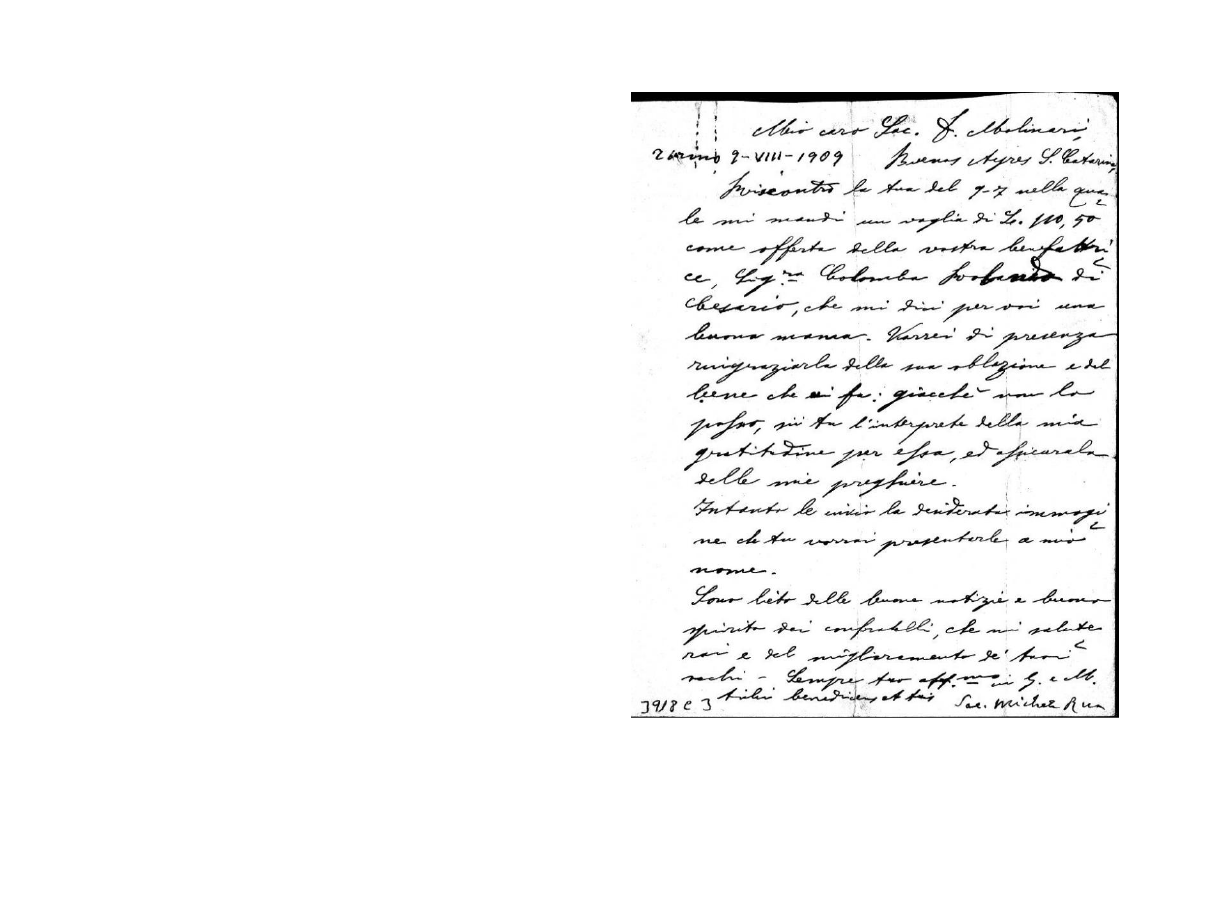 Mio caro Sac. F. Molinari,
Torino 9-VIII-1909 Buenos Ayres S. Catarina,
Riscontro la tua del 9-7 nella qua
le mi mandi un vaglia di L. 110,50
come offerta della vostra benefattri
ce, Sig.ra Colomba di
Cesario, che mi dici per voi una
buona mamma. Vorrei di presenza
ringraziarla della sua oblazione e del
bene che vi fa: giacché non lo
posso, sii tu l'interprete della mia
gratitudine per essa, ed assicurala
delle mie preghiere.
Intanto le invio la desiderata immagi
ne che tu vorrai presentarle a mio
nome.
Sono lieto delle buone notizie e buono
spirito dei confratelli, che mi salute
rai e del miglioramento de' tuoi
Sempre tuo aff.mo in G. e M.
tibi benedicens et tuis Sac. Michele Rua
3918 C 3